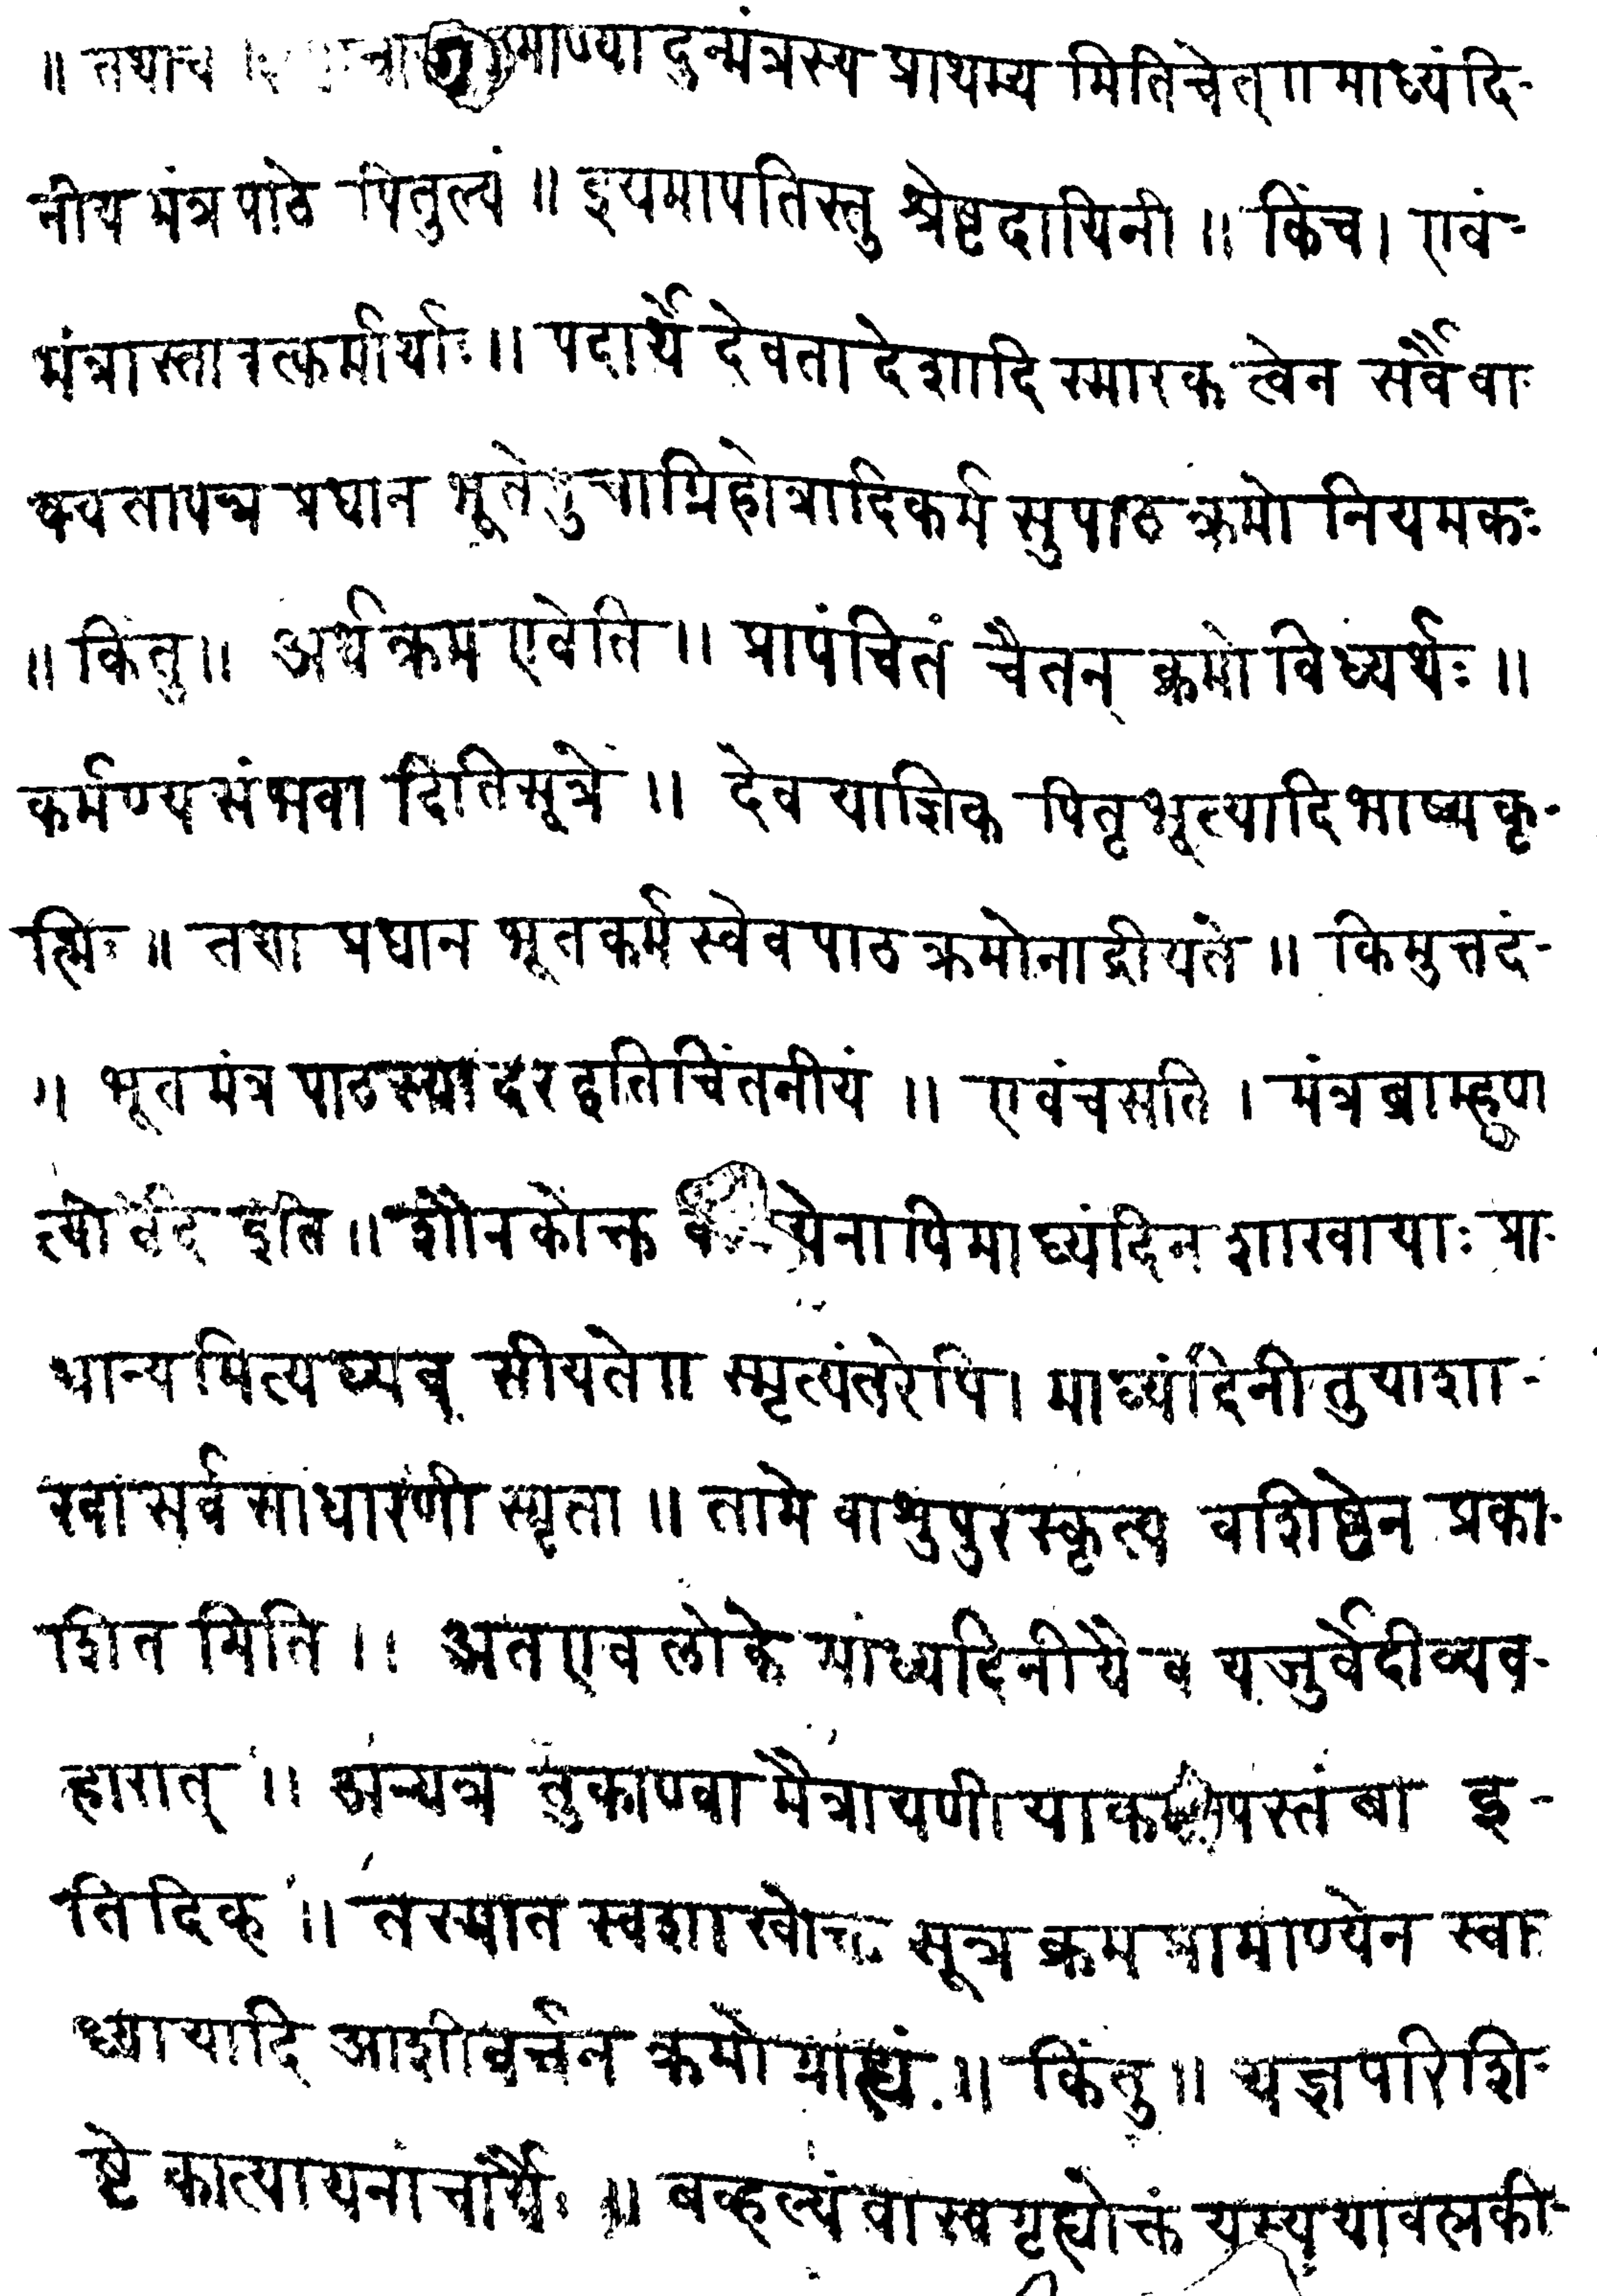 ॥ तथाच माण्यादुन्मंत्रस्य प्राथम्य मितिचेत् ॥ माध्यंदि-
नीय मंत्र पाठे पितुल्यं ॥ इयमापतिस्तु श्रेष्टदायिनी ॥ किंच । एवं-
मंत्रास्तावत्कर्मार्थाः ॥ पदार्थे देवता देशादि स्मारक त्वेन सर्वैवा-
प्रधान भूतेषुचाग्निहोत्रादिकर्म सुपाठ क्रमो नियमकः
॥ किंतु ॥ अर्थ क्रम एवेति ॥ प्रापंचितं चैतन् क्रमो विध्यर्थः ॥
कर्मण्य संभवा दितिसूत्रे ॥ देव याज्ञिक पितृभूत्यादि भाष्य कृ-
त्भिः ॥ तथा प्रधान भूतकर्म स्वेव पाठ क्रमोनाद्रीयते ॥ किमुत्तदं-
॥ भूत मंत्र पाठस्यादर इतिचिंतनीयं ॥ एवंचसति । मंत्र ब्राम्हण
त्यो र्वेद इति ॥ शौनकोक्त येनापिमाध्यंदिन शाखायाः प्रा-
धान्य मित्यध्यव सीयते ॥ स्मृत्यंतरेपि । माध्यंदिनी तुयाशा-
खा सर्व साधारणी स्मृता ॥ तामे वाथुपुरस्कृत्य वाशिष्टेन प्रका-
शित मिति ॥ अतएव लोके माध्यंदिनीये व यजुर्वेदीव्यव-
हारात् ॥ अन्यत्र तुकाण्वा मैत्रायणीया पस्तंबा इ-
तिदिक् ॥ तस्मात स्वशाखोक्त सूत्र क्रम प्रामाण्येन स्वा
ध्यायादि आशीर्वचन क्रमो ग्राह्यं ॥ किंतु ॥ यज्ञपारिशि-
ष्टे कात्यायनाचार्यैः ॥ बव्हल्पं वास्वगृह्योक्तं यस्य यावत्प्रकी-